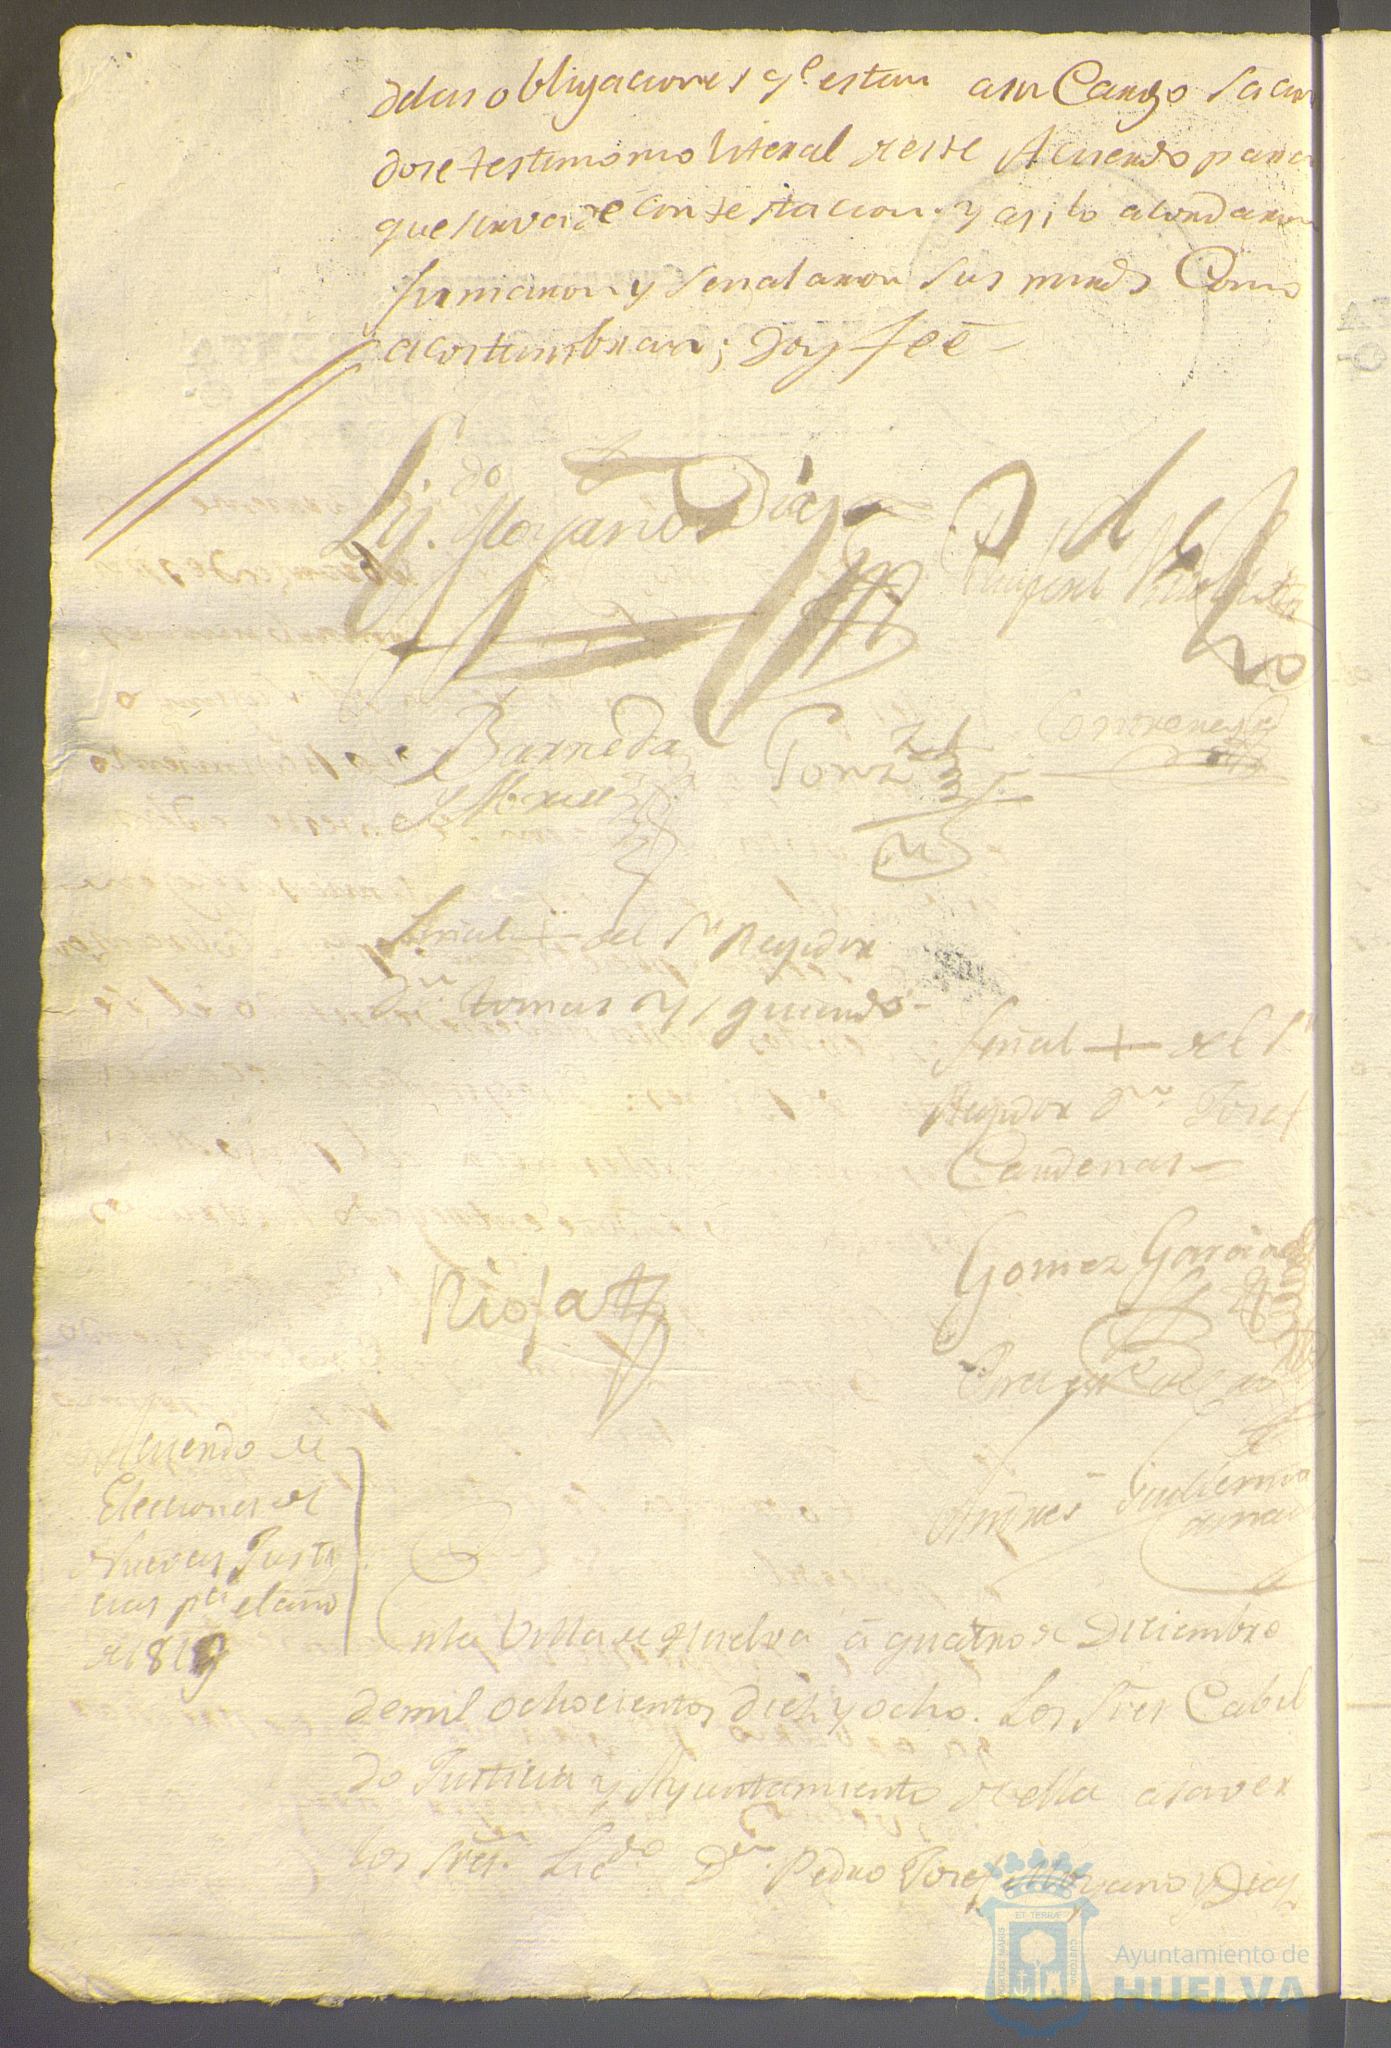 delas obligaciones qe. estan asu Cargo Sacan
dose testimonio literal de este Acuerdo para
que sirva de contestacion. y asi lo acordaron
firmaron y Señalaron Sus mrds Como
acostumbran; doy feé
Lizdo. Moyano Diaz
Barreda
Gonz
Contreras
Señal + del Sr Regidor
Dn. tomas Yzquierdo
Señal + del Sr
Regidor Dn. Josef
Cardenas
Gomez Garcia
Riofa
Andres Guillermo
Acuerdo de
Elecciones de
Nuevas Justi
cias pa. el año
de 1819
Enla Villa de Huelva á quatro de Diciembre
demil ochocientos diez y ocho. Los Sres Cabil
do Justicia y Ayuntamiento de ella asaver
los Sres. Licdo. Dn. Pedro Josef Moyano y Diaz
ET TERRÆ
PORTUS MARIS
CUSTODIA
Ayuntamiento de
HUELVA